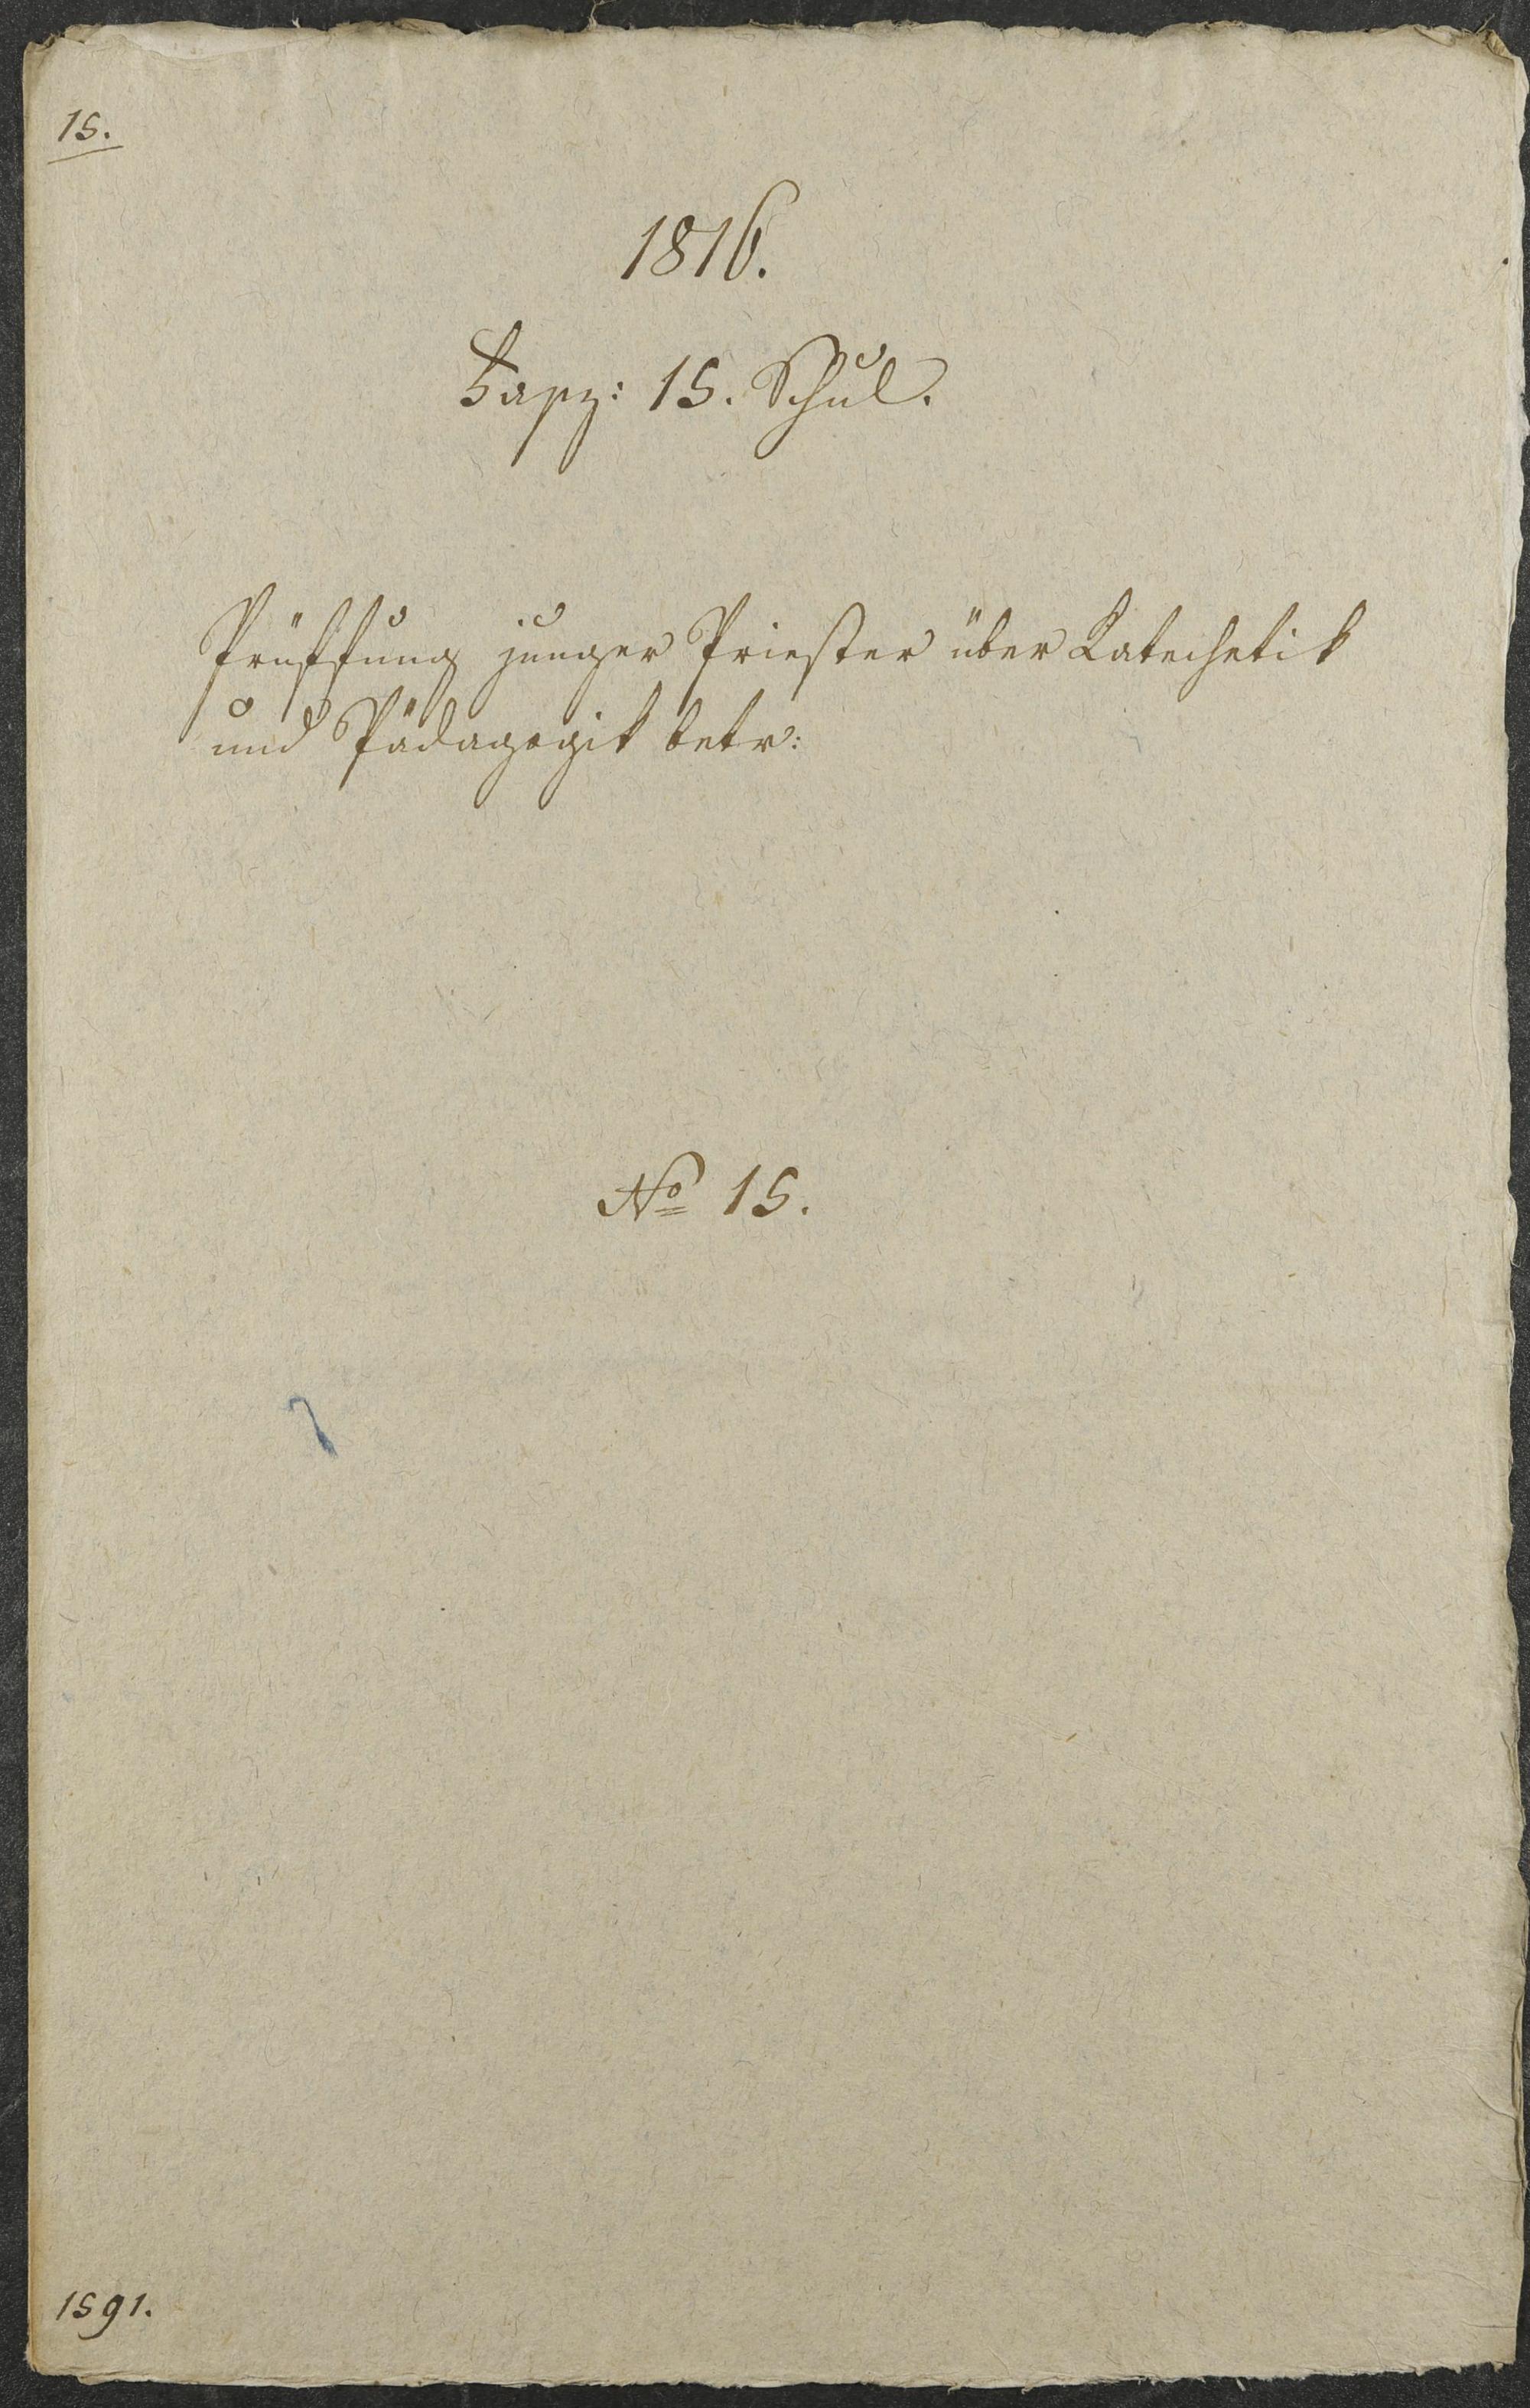 15.
1816.
Fasz: 15. Schul.
Prüffung junger Priester über Katechetik
und Pädagogik betr:
No 15.
1591.